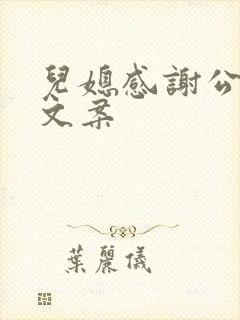 兒媳感謝公
文案
葉麗儀